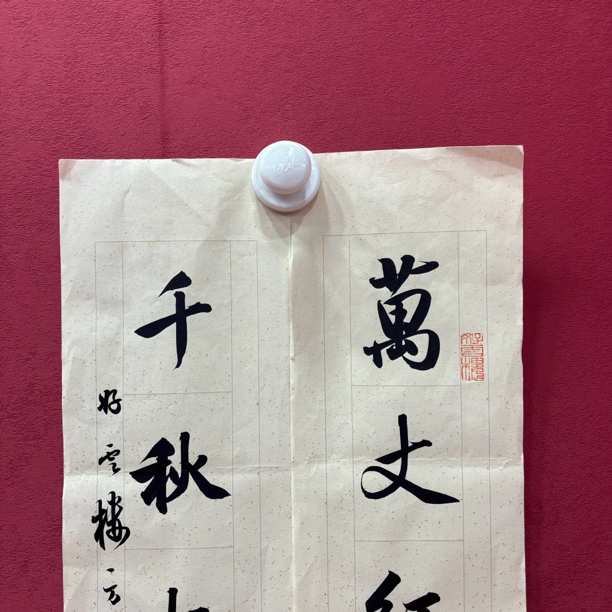 萬丈紅
千秋
好雲樓一方